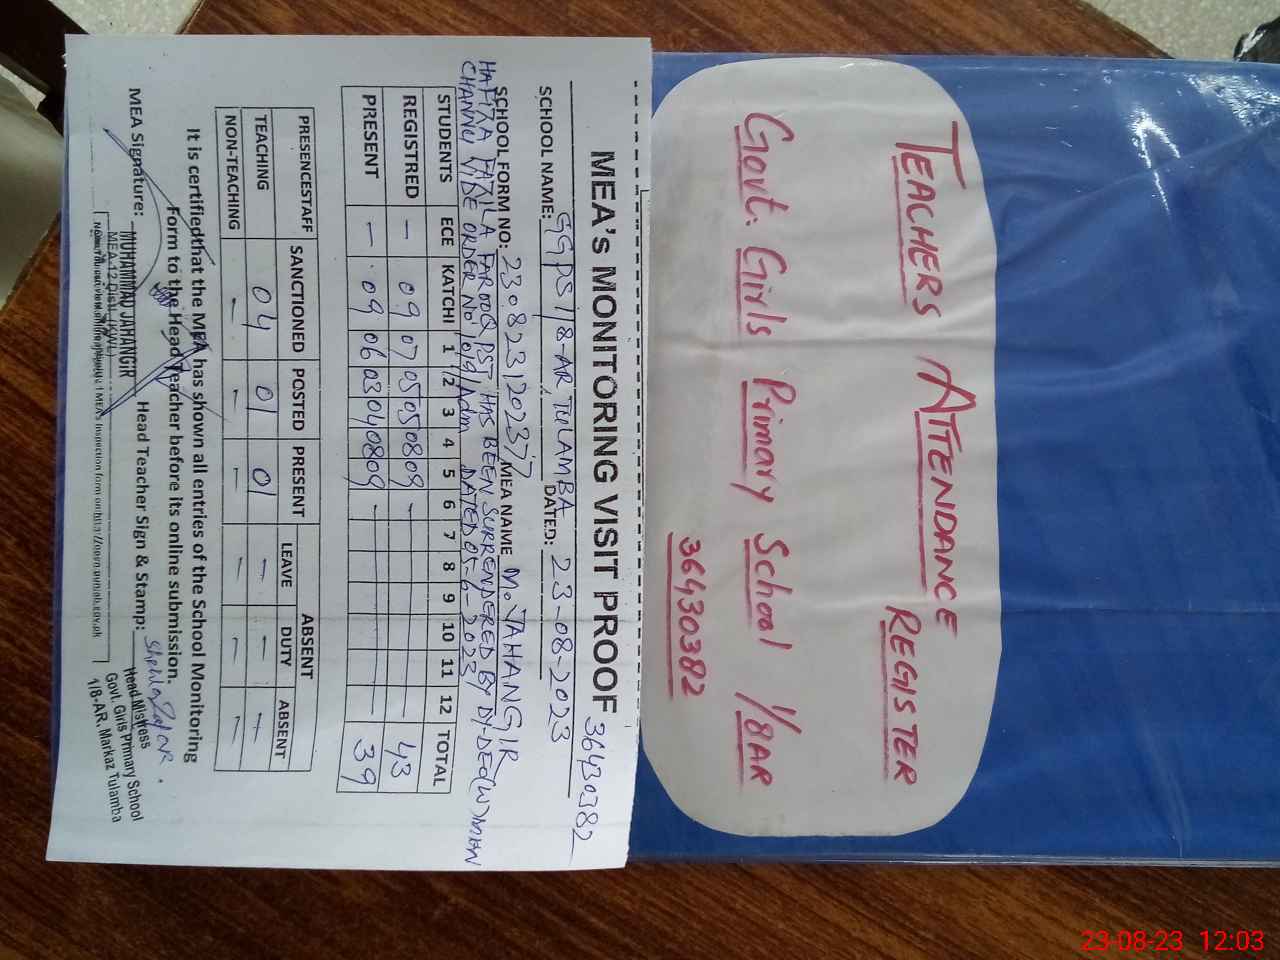 MEA's MONITORING VISIT PROOF 36430382
SCHOOL NAME: GGPS 1/8-AR, TULAMBA DATED: 23-08-2023
SCHOOL FORM NO: 230823120237 MEA NAME M. JAHANGIR
HAFIZA FAROOQ PST HAS BEEN SURRENDERED BY DY-DEO(W) MIAN
CHANNU VIDE ORDER NO 1019/Adm DATED 05-6-2023
STUDENTS ECE KATCHI 1 2 3 4 5 6 7 8 9 10 11 12 TOTAL
REGISTRED - 09 07 05 05 08 09 - 43
PRESENT - 09 06 03 04 08 09 - 39
PRESENCESTAFF SANCTIONED POSTED PRESENT ABSENT
LEAVE DUTY ABSENT
TEACHING 04 01 01 - - -
NON-TEACHING - - - - - -
It is certified that the MEA has shown all entries of the School Monitoring
Form to the Head Teacher before its online submission.
MEA Signature: Head Teacher Sign & Stamp:
MUHAMMAD JAHANGIR
MEA-12 Distt. (KWL)
Head Mistress
Govt. Girls Primary School
1/8-AR, Markaz Tulamba
TEACHERS ATTENDANCE REGISTER
Govt. Girls Primary School 1/8AR
36430382
23-08-23 12:03